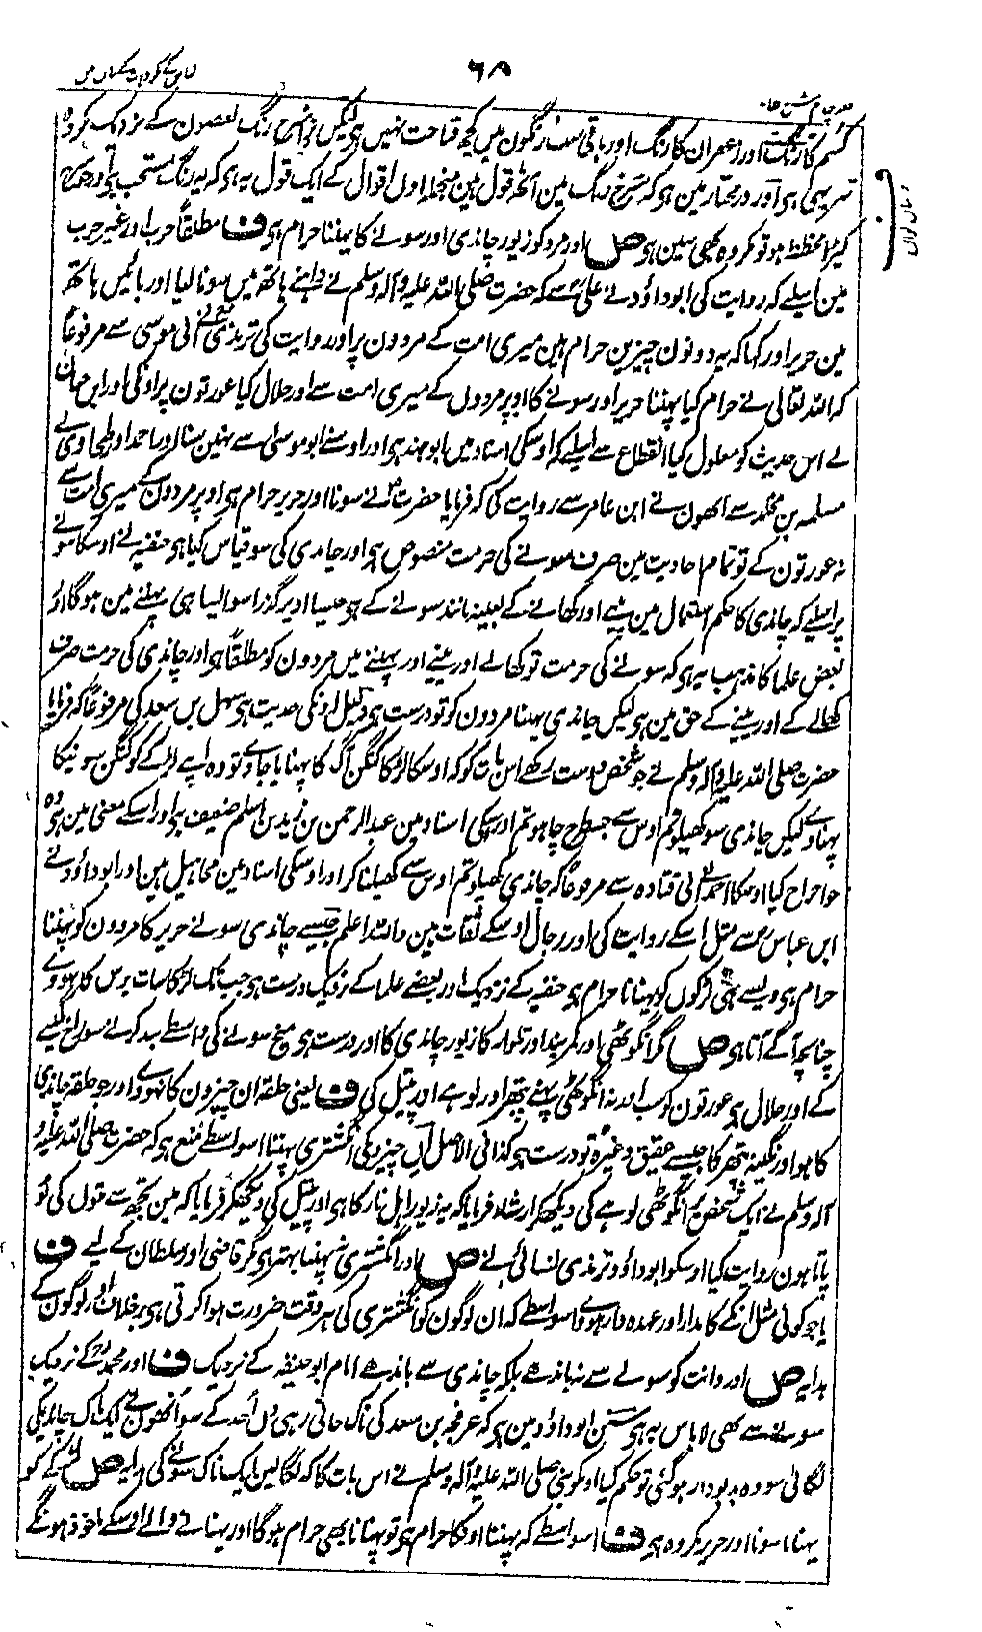 ۶۸
کسم کا رنگ اور زعفران کا رنگ اور باقی سب رنگون مین کچھ قباحت نہین ہی لیکن سرخ رنگ بعضون کے نزدیک مکروہ
تنزیہی ہی اور در مختار مین ہو کہ سرخ رنگ مین آٹھ قول ہین منجملہ اون اقوال کے ایک قول یہ ہو کہ یہ رنگ مستحب ہو اور
کپڑا مخطط ہو تو مکروہ بھی نہین ہو ص اور مرد کو زیور چاندی اور سونے کا پہننا حرام ہو ف مطلقاً حرب اور غیر حرب
مین اسلیے کہ روایت کی ابوداؤد نے علی سے کہ حضرت صلی اللہ علیہ وآلہ وسلم نے داہنے ہاتھ مین سونا لیا اور بائین ہاتھ
مین حریر اور کہا کہ یہ دونون چیزین حرام ہین میری امت کے مردون پر اور روایت کی ترمذی نے ابی موسی سے مرفوعاً
کہ اللہ تعالی نے حرام کیا پہننا حریر اور سونے کا اوپر مردون کے میری امت سے اور حلال کیا عورتون پر اونکی اور ابن حبان
نے اس حدیث کو معلول کیا انقطاع سے اسلیے کہ اوسکی اسناد مین ابو ہند ہی اور اوسنے ابو موسی سے نہین سنا اور احمد اور طحاوی نے
مسلمہ بن مخلد سے انھون نے ابن عامر سے روایت کی کہ فرمایا حضرت نے سونا اور حریر حرام ہی اوپر مردون کے میری امت سے
نہ عورتون کے تو تمام احادیث مین صرف سونے کی حرمت منصوص ہو اور چاندی کی سو قیاس کیا ہو حنفیہ نے اوسکا سونے
پر اسلیے کہ چاندی کا حکم استعمال مین پینے اور کھانے کے بعینہ مانند سونے کے ہو جیسا اوپر گذرا سو ایسا ہی پہننے مین ہوگا اور
بعض علما کا مذہب یہ ہو کہ سونے کی حرمت تو کھانے اور پینے اور پہننے مین مردون کو مطلقاً ہو اور چاندی کی حرمت صرف
کھانے کے اور پینے کے حق مین ہو لیکن چاندی پہننا مردون کو تو درست ہو دلیل اونکی حدیث ہو سہل بن سعد کی مرفوعاً کہ فرمایا
حضرت صلی اللہ علیہ وآلہ وسلم نے جو شخص دوست رکھے اس بات کو کہ اوسکا لڑکا کنگن آگ کا پہنایا جاوے تو وہ اپنے لڑکے کو کنگن سونیکا
پہناوے لیکن چاندی سو کھیلو تم اوس سے جسطرح چاہو تم اور اسکی اسناد مین عبدالرحمن بن زید بن اسلم ضعیف ہو اور اسکے معنی مین ہو وہ
جو اخراج کیا اوسکا احمد نے ابی قتادہ سے مرفوعاً کہ چاندی کھیلو تم اوس سے کھیلنا کر اور اوسکی اسناد مین مجاہیل ہین اور ابوداؤد نے
ابن عباس سے مثل اسکے روایت کی اور رجال اوسکے ثقات ہین واللہ اعلم جیسے چاندی سونے حریر کا مردون کو پہننا
حرام ہو ویسے ہی لڑکون کو پہنانا حرام ہو حنفیہ کے نزدیک اور بعضے علما کے نزدیک درست ہو جب تک لڑکا سات برس کا نہووے
چنانچہ آگے آتا ہو ص مگر انگوٹھی اور کمربند اور تلوار کا زیور چاندی کا اور درست ہو میخ سونے کی واسطے بند کرنے سوراخ نگینے
کے اور حلال ہو عورتون کو سب اور نہ انگوٹھی پہنے پتھر اور لوہے اور پیتل کی ف یعنی حلقہ ان چیزون کا نہووے اور جو حلقہ چاندی
کا ہو اور نگینہ پتھر کا جیسے عقیق وغیرہ تو درست ہو کذا فی الاصل ان چیزونکی انگشتری پہننا اسواسطے منع ہو کہ حضرت صلی اللہ علیہ و
آلہ وسلم نے ایک شخص پر انگوٹھی لوہے کی دیکھکر ارشاد فرمایا کہ یہ زیور اہل نار کا ہی اور پیتل کی دیکھکر فرمایا کہ مین تجھ سے بتون کی بو
پاتا ہون روایت کیا اوسکو ابوداؤد و ترمذی نسائی نے ص اور انگشتری نہ پہننا بہتر ہو مگر قاضی اور سلطان کے لیے ف
یا جو کوئی مثل انکے کامدار اور عہدہ دار ہووے اسواسطے کہ ان لوگون کو انگشتری کی ہر وقت ضرورت ہوا کرتی ہی برخلاف اور لوگون کے
ہدایہ ص اور دانت کو سونے سے نہ باندھے بلکہ چاندی سے باندھے امام ابو حنیفہ کے نزدیک ف اور محمد کے نزدیک
سونے سے بھی لاباس بہ ہو سنن ابوداؤد مین ہو کہ عرفجہ بن سعد کی ناک جاتی رہی دن احد کے سو انھون نے ایک ناک چاندیکی
لگائی سو وہ بدبودار ہوگئی تو حکم کیا اونکو نبی صلی اللہ علیہ وآلہ وسلم نے اس بات کا کہ لگا لین ایک ناک سونے کی ہدایہ ص لڑکے کو
پہنانا سونا اور حریر مکروہ ہو ف اسواسطے کہ پہننا اونکا حرام ہو تو پہنانا بھی حرام ہوگا اور پہنانے والے اوسکے ماخوذ ہونگے